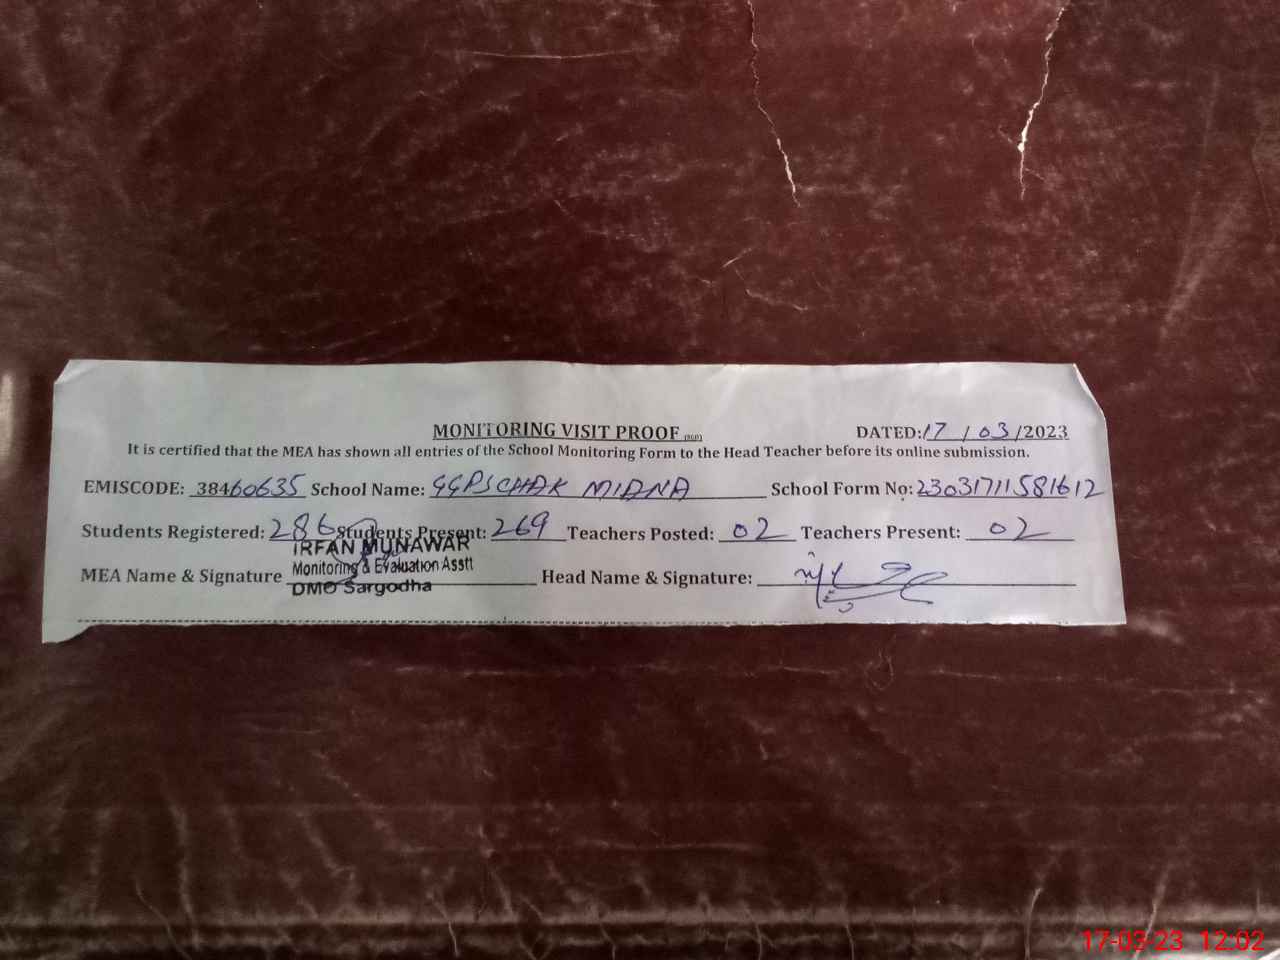 MONITORING VISIT PROOF (SGD) DATED: 17 / 03 /2023
It is certified that the MEA has shown all entries of the School Monitoring Form to the Head Teacher before its online submission.
EMISCODE: 38460635 School Name: GGPS CHAK MIANA School Form No: 23031711581612
Students Registered: 286 Students Present: 269 Teachers Posted: 02 Teachers Present: 02
IRFAN MUNAWAR
Monitoring & Evaluation Asstt
MEA Name & Signature Head Name & Signature:
DMO Sargodha
17-03-23 12:02